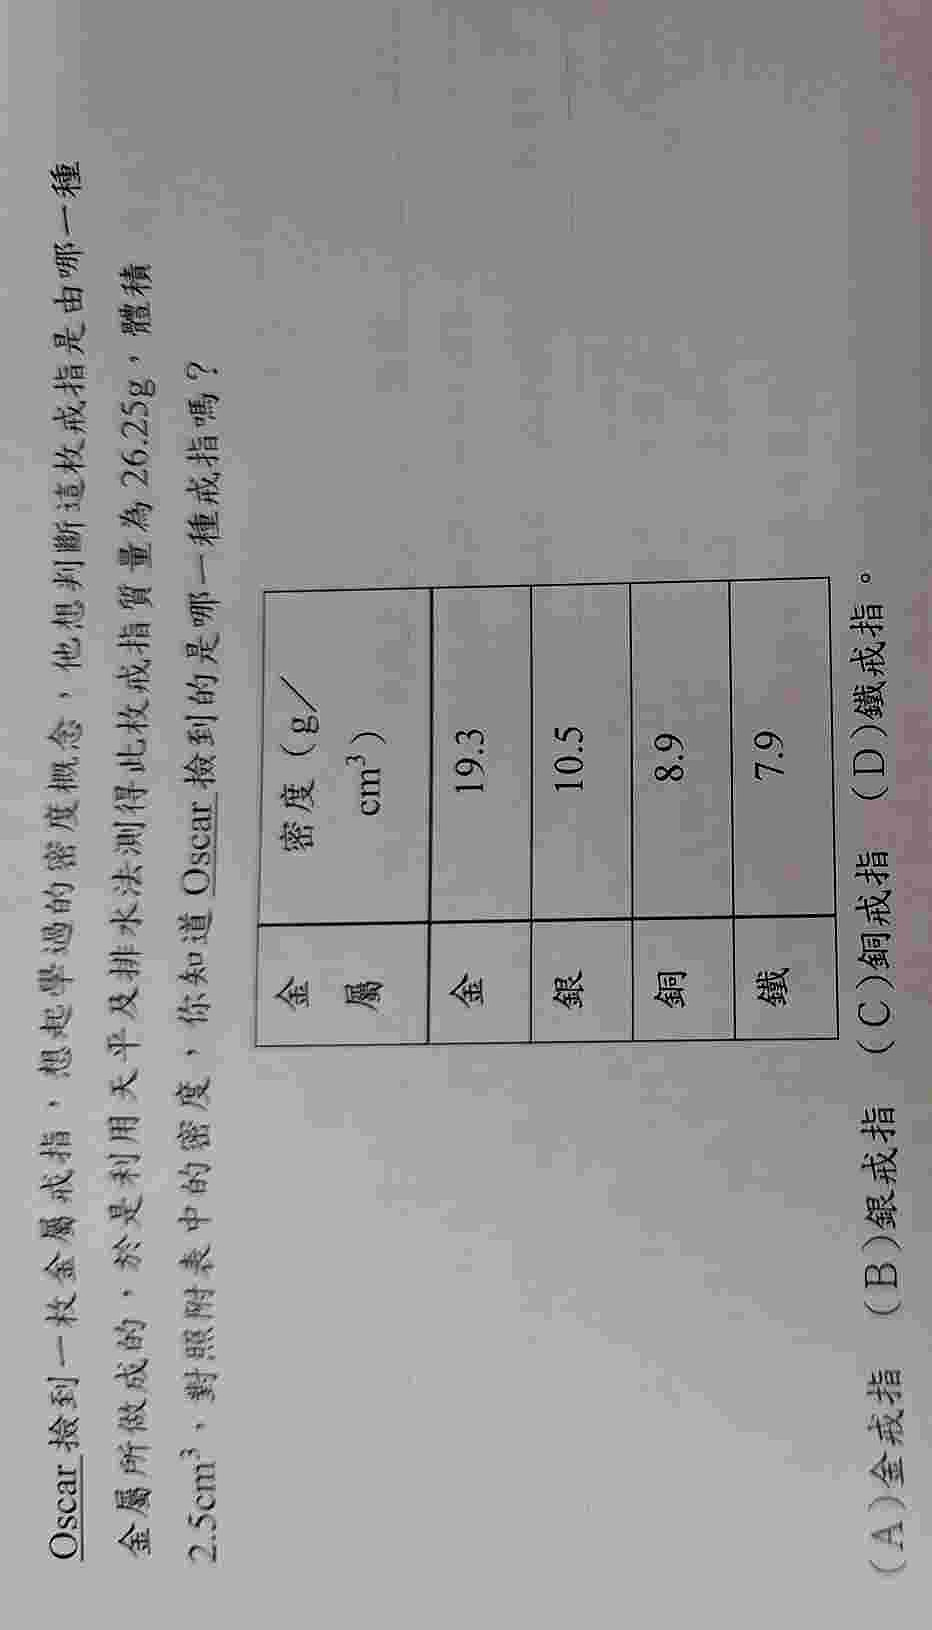 Oscar 撿到一枚金屬戒指，想起學過的密度概念，他想判斷這枚戒指是由哪一種
金屬所做成的，於是利用天平及排水法測得此枚戒指質量為 26.25g，體積
2.5cm³，對照附表中的密度，你知道 Oscar 撿到的是哪一種戒指嗎？
金屬 密度（g／cm³）
金 19.3
銀 10.5
銅 8.9
鐵 7.9
（A）金戒指　（B）銀戒指　（C）銅戒指　（D）鐵戒指。